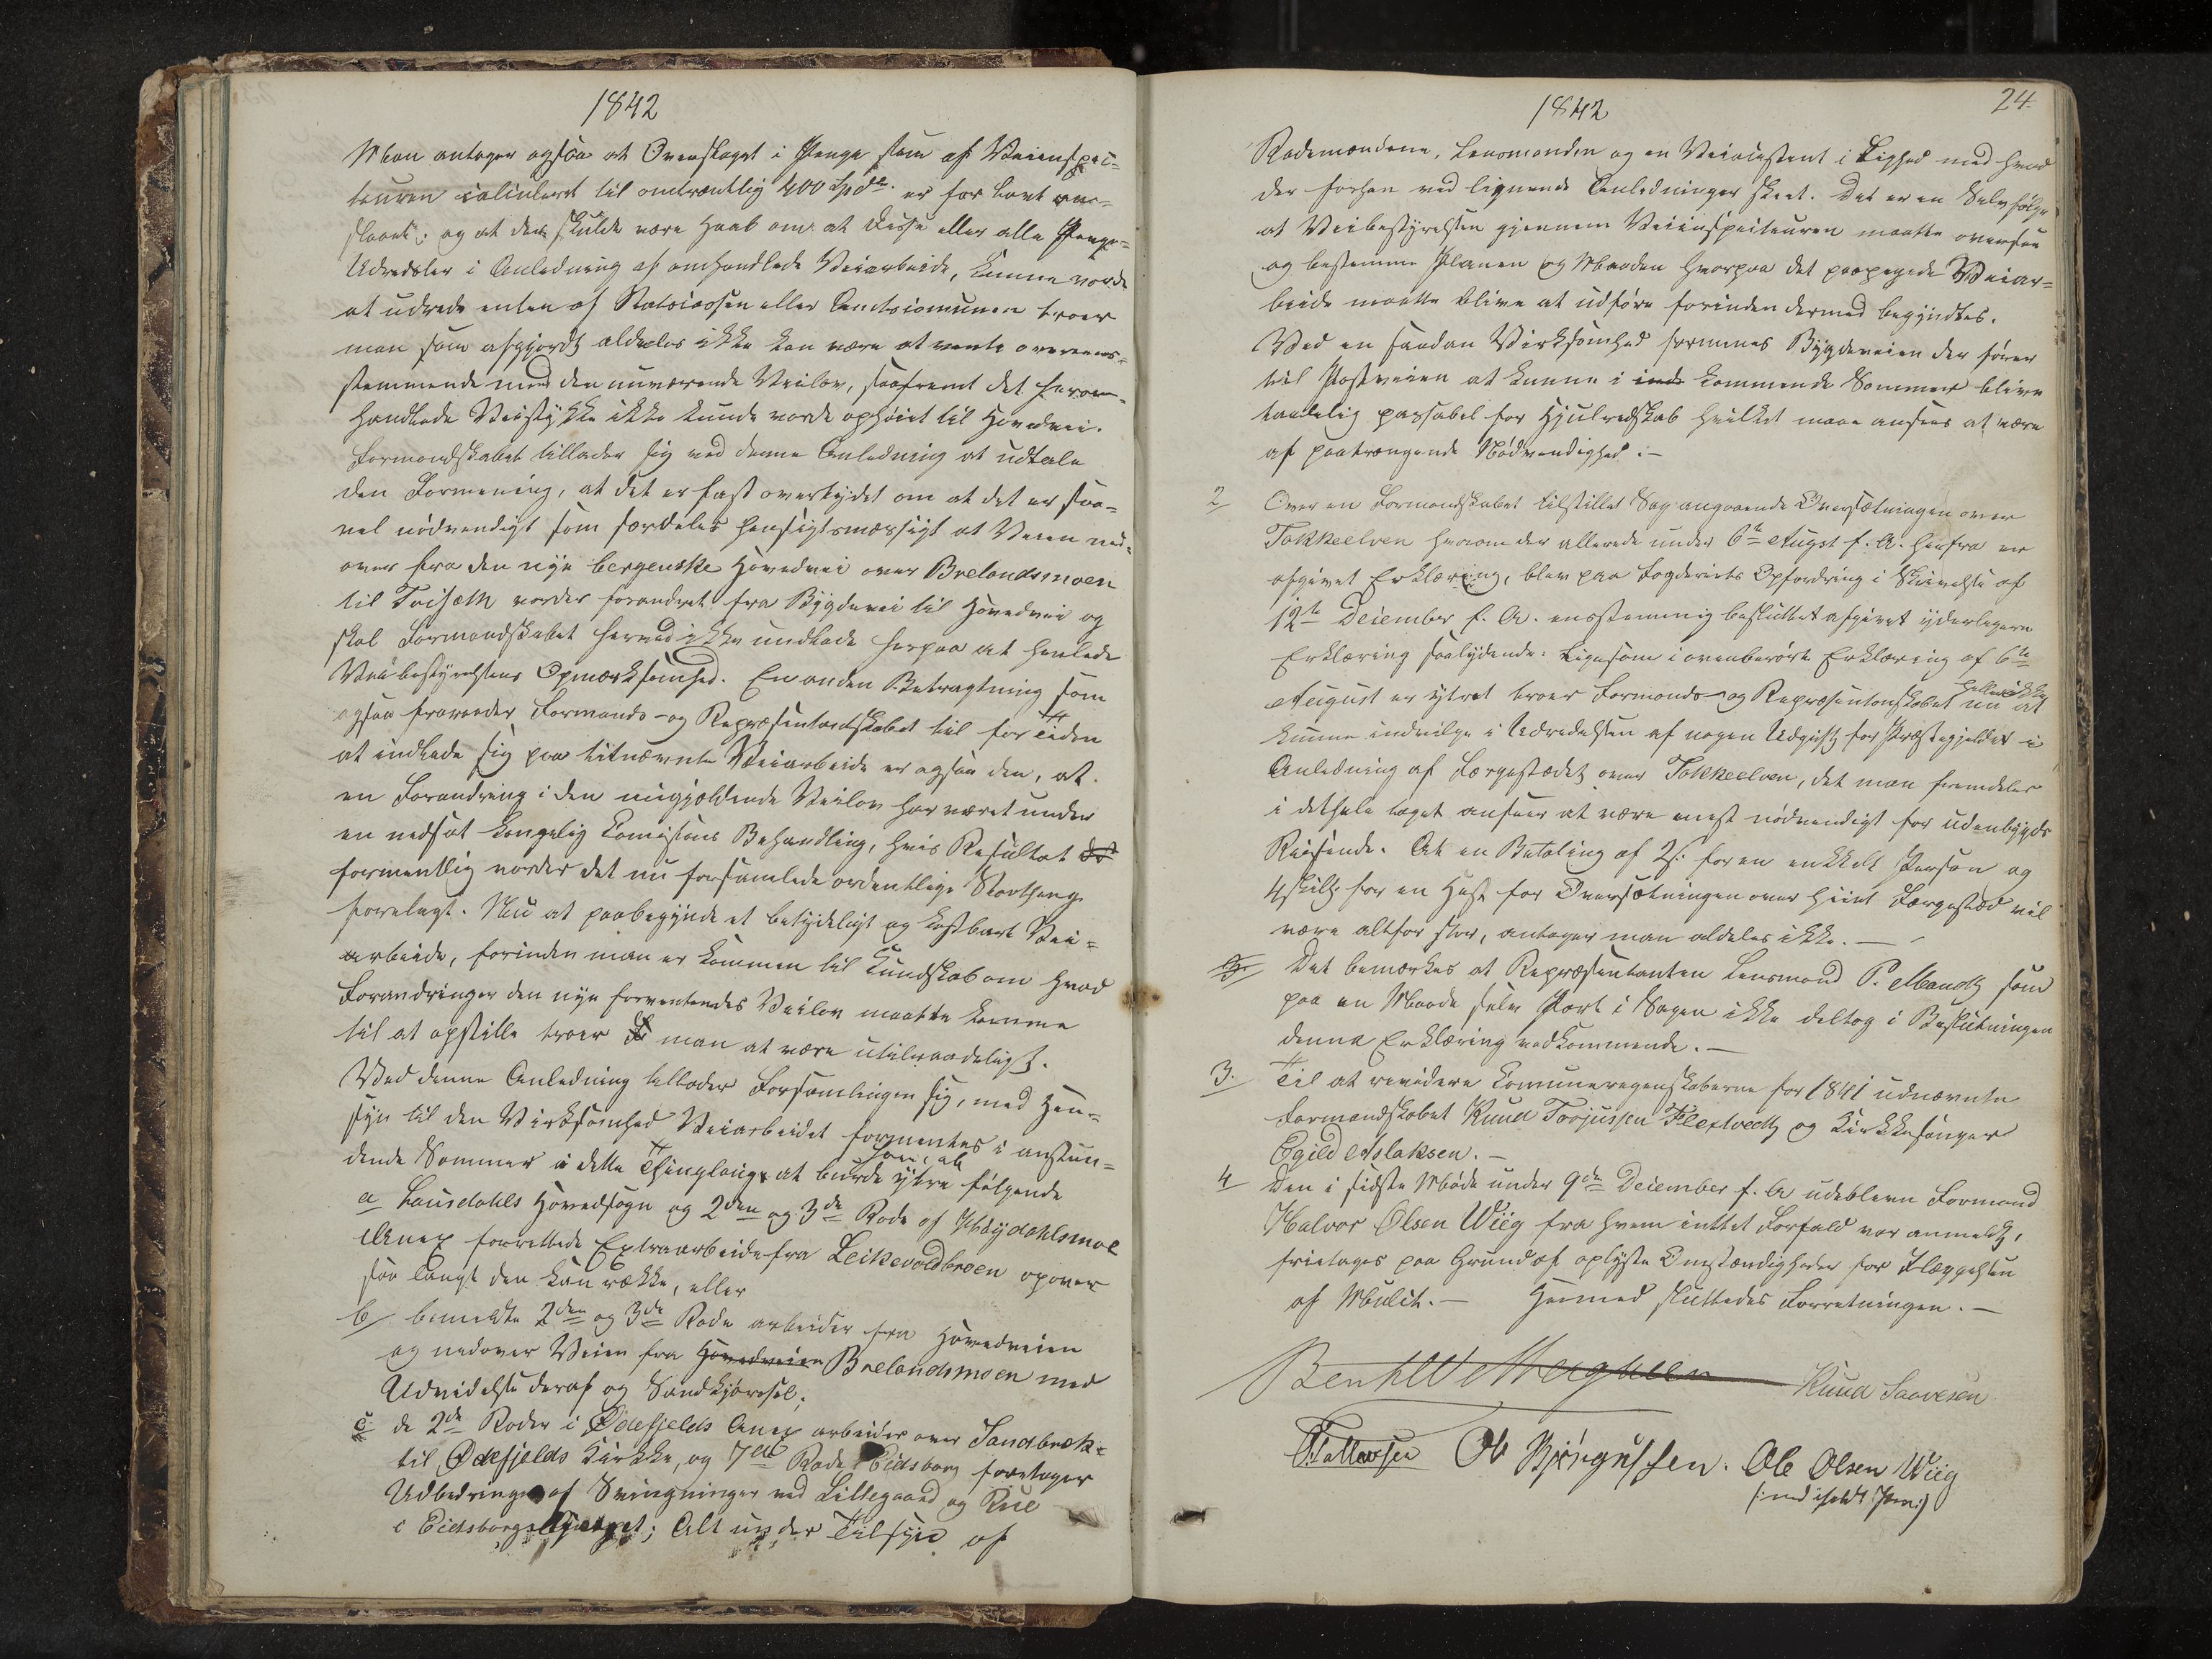 1842
Man antager ogsaa at Overslaget i Penge som af Veiinspec=
teuren calculeret til omtrentlig 400 Spd. er for lavt an=
slaaet; og at der skulde være Haab om at disse eller alle Penge=
Udredsler i Anledning af omhandlede Veiarbeide, kunne vorde
at udrede enten af Statscassen eller Amtscommunen troer
man som afgjordt aldeles ikke kan være at vente overeens=
stemmende med den nuværende Veilov, saafremt det herom=
handlede Veistykke ikke kunde vorde ophøiet til Hovedvei.
Formandskabet tillader sig ved denne Anledning at udtale
den Formening, at det er fast overtydet om at det er saa=
vel nødvendigt som særdeles hensigtsmæssigt at Veien ned=
over fra den nye bergenske Hovedvei over Brelandsmoen
til Triseth vorder forandret fra Bygdevei til Hovedvei og
skal Formandskabet herved ikke undlade herpaa at henlede
Veibestyrelsens Opmærksomhed. En anden Betragtning som
ogsaa fraraader Formands- og Repræsentantskabet til for Tiden
at indlade sig paa bemeldte Veiarbeide er ogsaa den, at
en Forandring i den nugjældende Veilov har været under
en nedsat kongelig Comissions Behandling, hvis Resultat
formentlig vorder det nu forsamlede ordentlige Storthing
forelagt. Nu at paabegynde et betydeligt og kostbart Vei=
arbeide, forinden man er kommen til Kundskab om hvad
Forandringer den nye forventendes Veilov maatte komme
til at opstille troer man at være utilraadeligt.
Ved denne Anledning tillader Forsamlingen sig, med Hen=
syn til den Virksomhed Veiarbeidet formentes i anstun=
dende Sommer i dette Thinglaug at burde ytre følgende
a Laurdahls Hovedsogn og 2den og 3de Rode af Høydahlsmoe
Anex forrettede Extraarbeide fra Leikevoldbroen opover
saa langt den kan række, eller
b bemeldte 2den og 3de Rode arbeider fra Hovedveien
og nedover Veien fra Hovedveien Brelandsmoen med
Udvidelse deraf og Sandkjørsel;
c de 2de Roder i Ødefjelds Anex arbeider over Sandbræk=
til Ødefjelds Kirkke, og 7de Rode Eidsborg foretager
Udbedring af Svingninger ved Littegaard og Rue
i Eidsborg; Alt under Tilsyn af
1842
24.
Rodemændene, Lensmanden og en Veiassistent i Lighed med hvad
der forhen ved lignende Anledninger skeet. Det er en Selvfølge
at Veibestyrelsen gjennem Veiinspecteuren maatte oversee
og bestemme Planen og Maaden hvorpaa det paapegede Veiar=
beide maatte blive at udføre forinden dermed begyndtes.
Ved en saadan Virksomhed formenes Bygdeveien der fører
til Postveien at kunne i kommende Sommer blive
taalelig passabel for Hjulredskab hvilket maa ansees at være
af paatrængende Nødvendighed.-
2 Over en Formandskabet tilstillet Sag angaaende Oversætningen over
Tokkeelven hvorom der allerede under 6te Augst f. A. herfra er
afgivet Erklæring, blev paa Fogderiets Opfordring i Skrivelse af
12te December f. A. eensstemmig besluttet afgivet yderligere
Erklæring saalydende: Ligesom i ovenberørte Erklæring af 6te
August er ytret troer Formands- og Repræsentantskabet nu heller ikke at
kunne indvilge i Udredelsen af nogen Udgift for Præstegjeldet i
Anledning af Færgestædet over Tokkeelven, det man fremdeles
i dethele taget anseer at være mest nødvendigt for udenbygds
Reisende. At en Betaling af 2s. for en enkkelt Person og
4 skill. for en Hest for Oversætningen over hiint Færgestæd vil
være altfor stor, antager man aldeles ikke. —
Det bemærkes at Repræsentanten Lensmand P. Mandt som
paa en Maade selv Part i Sagen ikke deltog i Beslutningen
denne Erklæring vedkommende. —
3. Til at revidere Communeregnskaberne for 1841 udnævnte
Formandskabet Knud Torjussen Flextvedt og Kirkkesanger
Egild Aslaksen. —
4 Den i sidste Møde under 9de December f. A udeblevne Formand
Halvor Olsen Wiig fra hvem inttet Forfald var anmeldt,
frietages paa Grund af oplyste Omstændigheder for Ilæggelsen
af Mulct. — Hermed sluttedes Forretningen. —
Knud Saavesen
Ole Bjørgufsen. Ole Olsen Wiig
(: med iholdt Pen:)